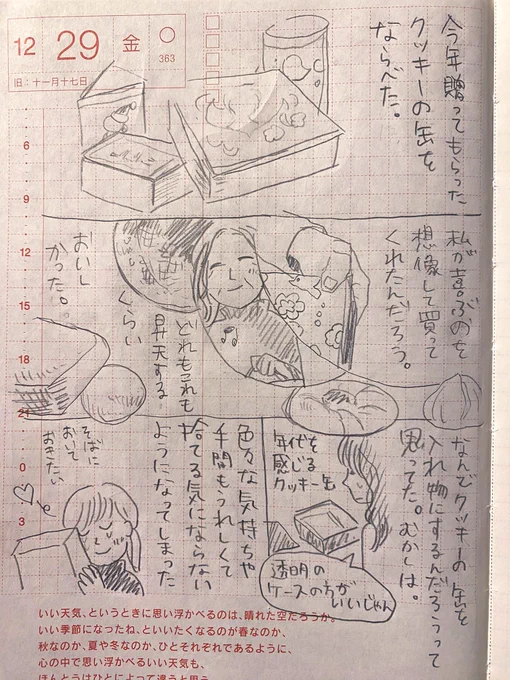 12 29 金 363
旧:十一月十七日
今年贈ってもらった
クッキーの缶を
ならべた。
6
9
12
15
18
21
0
3
私が喜ぶのを
想像して買って
くれたんだろう。
どれもこれも
昇天する
くらい
おいし
かった。
なんでクッキーの缶を
入れ物にするんだろうって
思ってた。むかしは。
年代を
感じる
クッキー缶
透明の
ケースの方が
いいじゃん
色々な気持ちや
手間もうれしくて
捨てる気にならない
ようになってしまった
そばに
おいて
おきたい
いい天気、というときに思い浮かべるのは、晴れた空だろうか。
いい季節になったね、といいたくなるのが春なのか、
秋なのか、夏や冬なのか、ひとそれぞれであるように、
心の中で思い浮かべるいい天気も、
ほんとうはひとによって違うと思う。